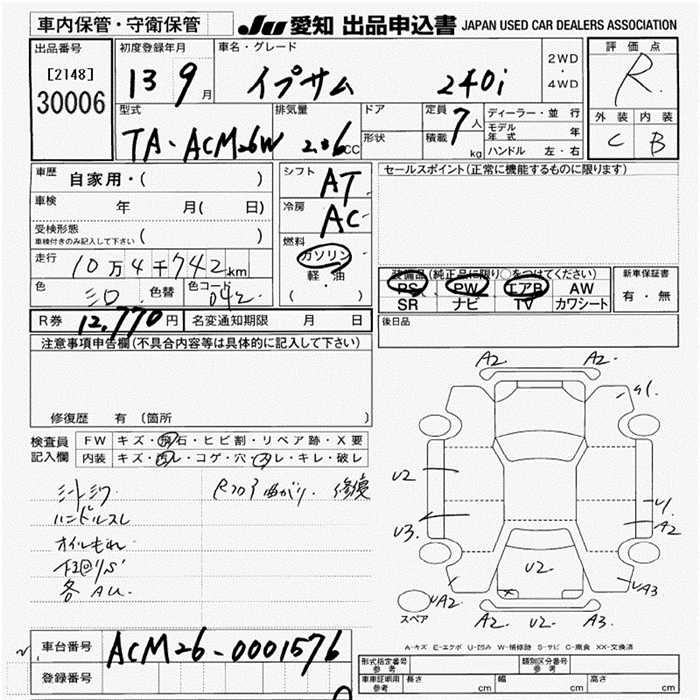 車内保管・守衛保管
JU 愛知 出品申込書 JAPAN USED CAR DEALERS ASSOCIATION
出品番号
[2148]
30006
初度登録年月
13 9月
車名・グレード
イプサム 240i
2WD
・
4WD
評価点
R
外装 内装
C B
型式
TA-ACM26W
排気量
CC
ドア
形状
定員 7人
積載 kg
ディーラー・並行
モデル年式 年
ハンドル 左・右
車歴 自家用・( )
車検 年 月( 日)
受検形態
車検付きのみ記入して下さい ( )
走行 10万4千742km
色 色替 色コード 042
シフト AT
冷房 AC
燃料
ガソリン
軽・油
( )
セールスポイント(正常に機能するものに限ります)
装備品(純正品に限り○をつけてください)
PS PW エアB AW
SR ナビ TV カワシート
新車保証書
有・無
後日品
R券 12,770円 名変通知期限 月 日
注意事項申告欄(不具合内容等は具体的に記入して下さい)
修復歴 有 (箇所
検査員記入欄
FW キズ・飛石・ヒビ割・リペア跡・X要
内装 キズ・汚レ・コゲ・穴・スレ・キレ・破レ
ハンドルスレ
オイルもれ
下回りS
各AU
曲がり. 修復
A2 A2
A1
U2
U3
U1
A2
U2
UA2
UA3
A2 U2 A3
スペア
A-キズ E-エクボ U-凹み W-補修跡 S-サビ C-腐食 XX-交換済
車台番号 ACM26-0001576
登録番号
形式指定番号
参考
類別区分番号
参考
車庫証明用
参考
長さ cm 幅 cm 高さ cm